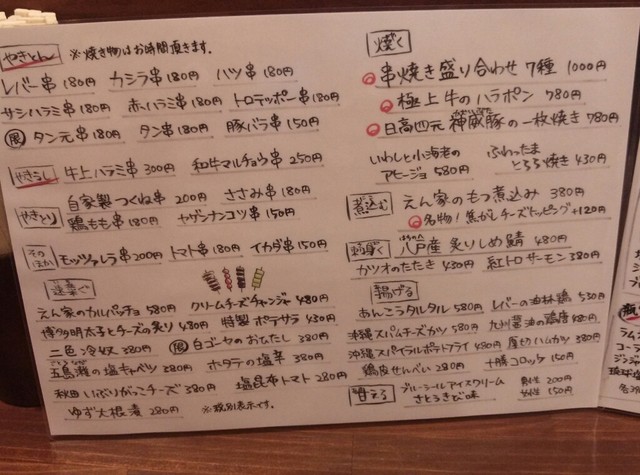 やきとん ※焼き物はお時間頂きます。
レバー串180円 カシラ串180円 ハツ串180円
サシハラミ串180円 赤ハラミ串180円 トロテッポー串180円
限 タン元串180円 タン串180円 豚バラ串150円
やきうし 牛上ハラミ串300円 和牛マルチョウ串250円
やきとり 自家製つくね串200円 ささみ串180円
鶏もも串180円 ヤゲンナンコツ串150円
そのほか モッツァレラ串200円 トマト串180円 イカダ串150円
えん家のカルパッチョ580円 クリームチーズチャンジャ480円
博多明太子とチーズの炙り480円 特製ポテサラ430円
二色冷奴380円 限 白ゴーヤのおひたし380円
五島灘の塩キャベツ380円 ホタテの塩辛380円
秋田いぶりがっこチーズ380円 塩昆布トマト280円
ゆず大根漬280円 ※税別表示です。
焼く
串焼き盛り合わせ7種1000円
極上牛のハラポン780円
日高四元神威豚の一枚焼き780円
いわしと小海老のアヒージョ580円
ふわったまとろろ焼き430円
煮込む えん家のもつ煮込み380円
名物!焦がしチーズトッピング+120円
八戸産炙りしめ鯖480円
カツオのたたき430円 紅トロサーモン380円
揚げる
あんこうタルタル580円 レバーの油林鶏530円
沖縄スパムチーズカツ580円 九州醤油の鶏唐480円
沖縄スパイラルポテトフライ480円 厚切ハムカツ380円
鶏皮せんべい280円 十勝コロッケ150円
甘える ブルーシールアイスクリーム さとうきび味
男性200円
女性150円